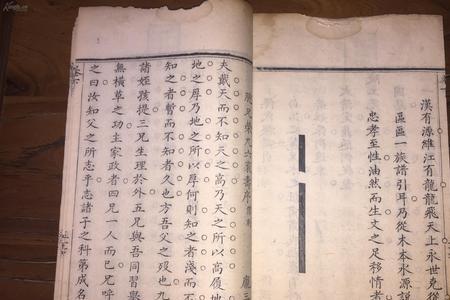 漢有源維江有龍龍飛天上永世克從
區區一族譜引耳乃從木本水源説
忠孝至性油然而生文之足移情
兄
九六
壽序
龐三
夫戴天而不知天之高乃天之所以高履地
地之厚乃地之所以厚何則知之者淺而不
知之者暫而不知者久也方吾父之歿也九
諸姪孩提三兄生理於外五兄與吾同習舉
無橫草之功主家政者四兄一人而已兄呼
之曰汝知父之所志乎志諸子之科第成名